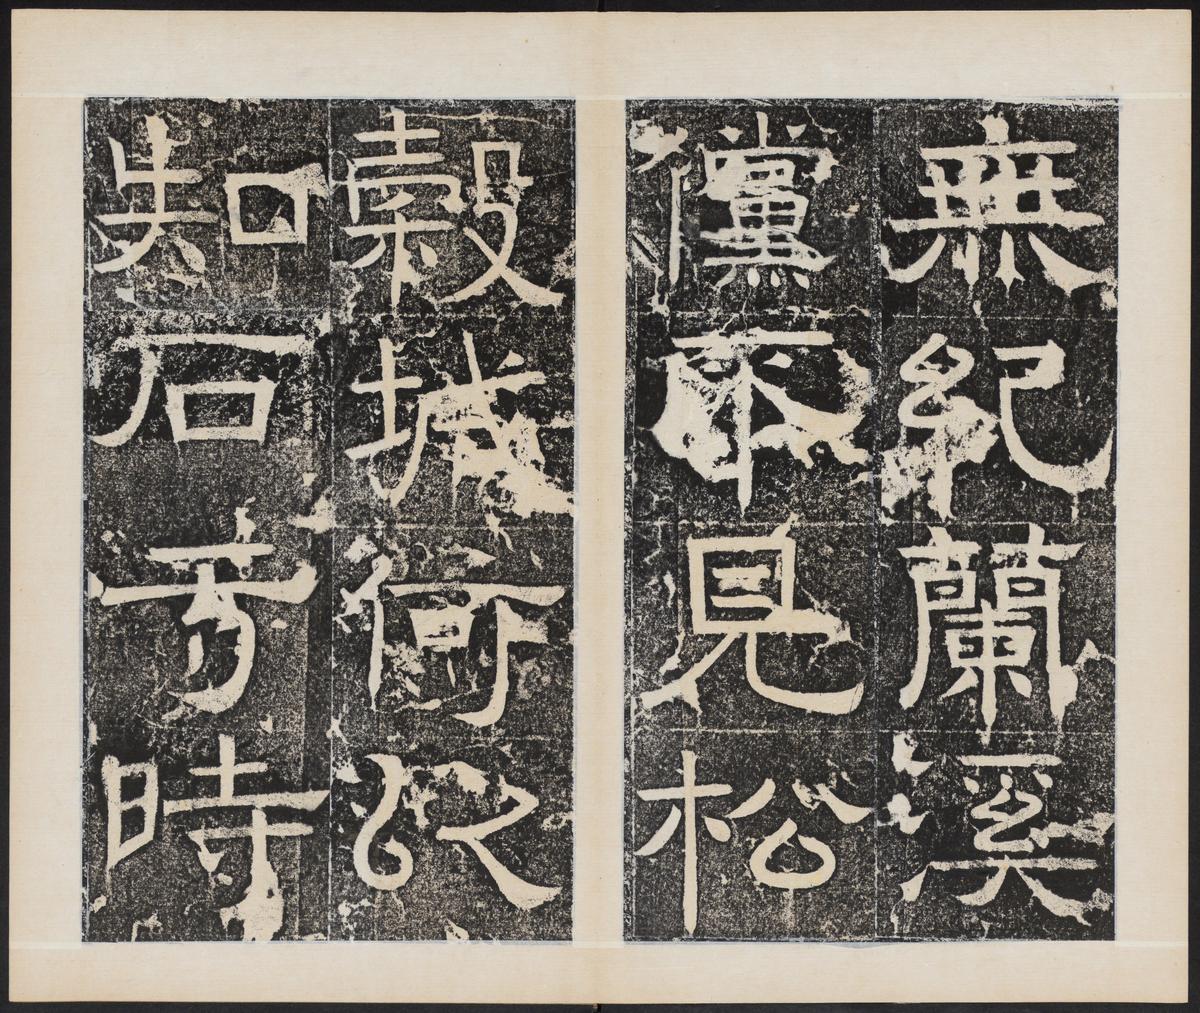 無紀蘭溪
儻不見松
穀城何以
知石于時